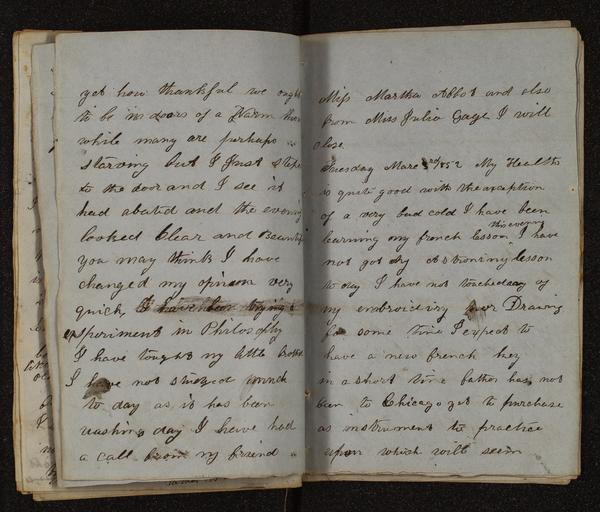 yet how thankful we ought
to be in doors of a Warm
while many are perhaps
starving but I Just steped
to the door and I see it
had abated and the evening
looked Clear and Beautif
you may think I have
changed my opinion very
quick, I have been trying
experiment in Philosophy
I have taught my little brother
I have not studied much
to day as it has been
washing day I have had
a call from my friend
Miss Martha Abbot and also
from Miss Julia Gage I will
close
Tuesday Marc 3rd 1852 My Health
is quite good with the exception
of a very bad cold I have been
learning my french lesson this evening I have
not got my Astronimy lesson
to day I have not touched any of
my embroidiry nor Drawing
for some time I expect to
have a new french
in a short time father has not
been to Chicago yet to purchase
an instrument to practice
upon which will seem